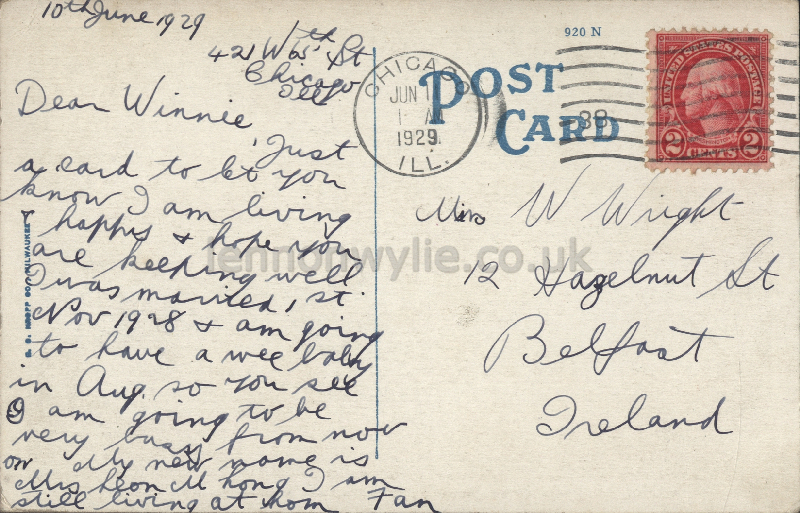 10th June 1929
421 W 65th St
Chicago
Ill
Dear Winnie
Just
a card to let you
know I am living
happy & hope you
are keeping well
I was married 1st
Nov 1928 & am going
to have a wee baby
in Aug. so you see
I am going to be
very busy from now
on My new name is
Mrs Leon M Chong I am
still living at hom Fan
920 N
POST
CARD
CHICAGO
JUN
1929
ILL.
UNITED STATES POSTAGE
2 CENTS 2
Miss W Wright
12 Hazelnut St
Belfast
Ireland
lennonwylie.co.uk
MILWAUKEE